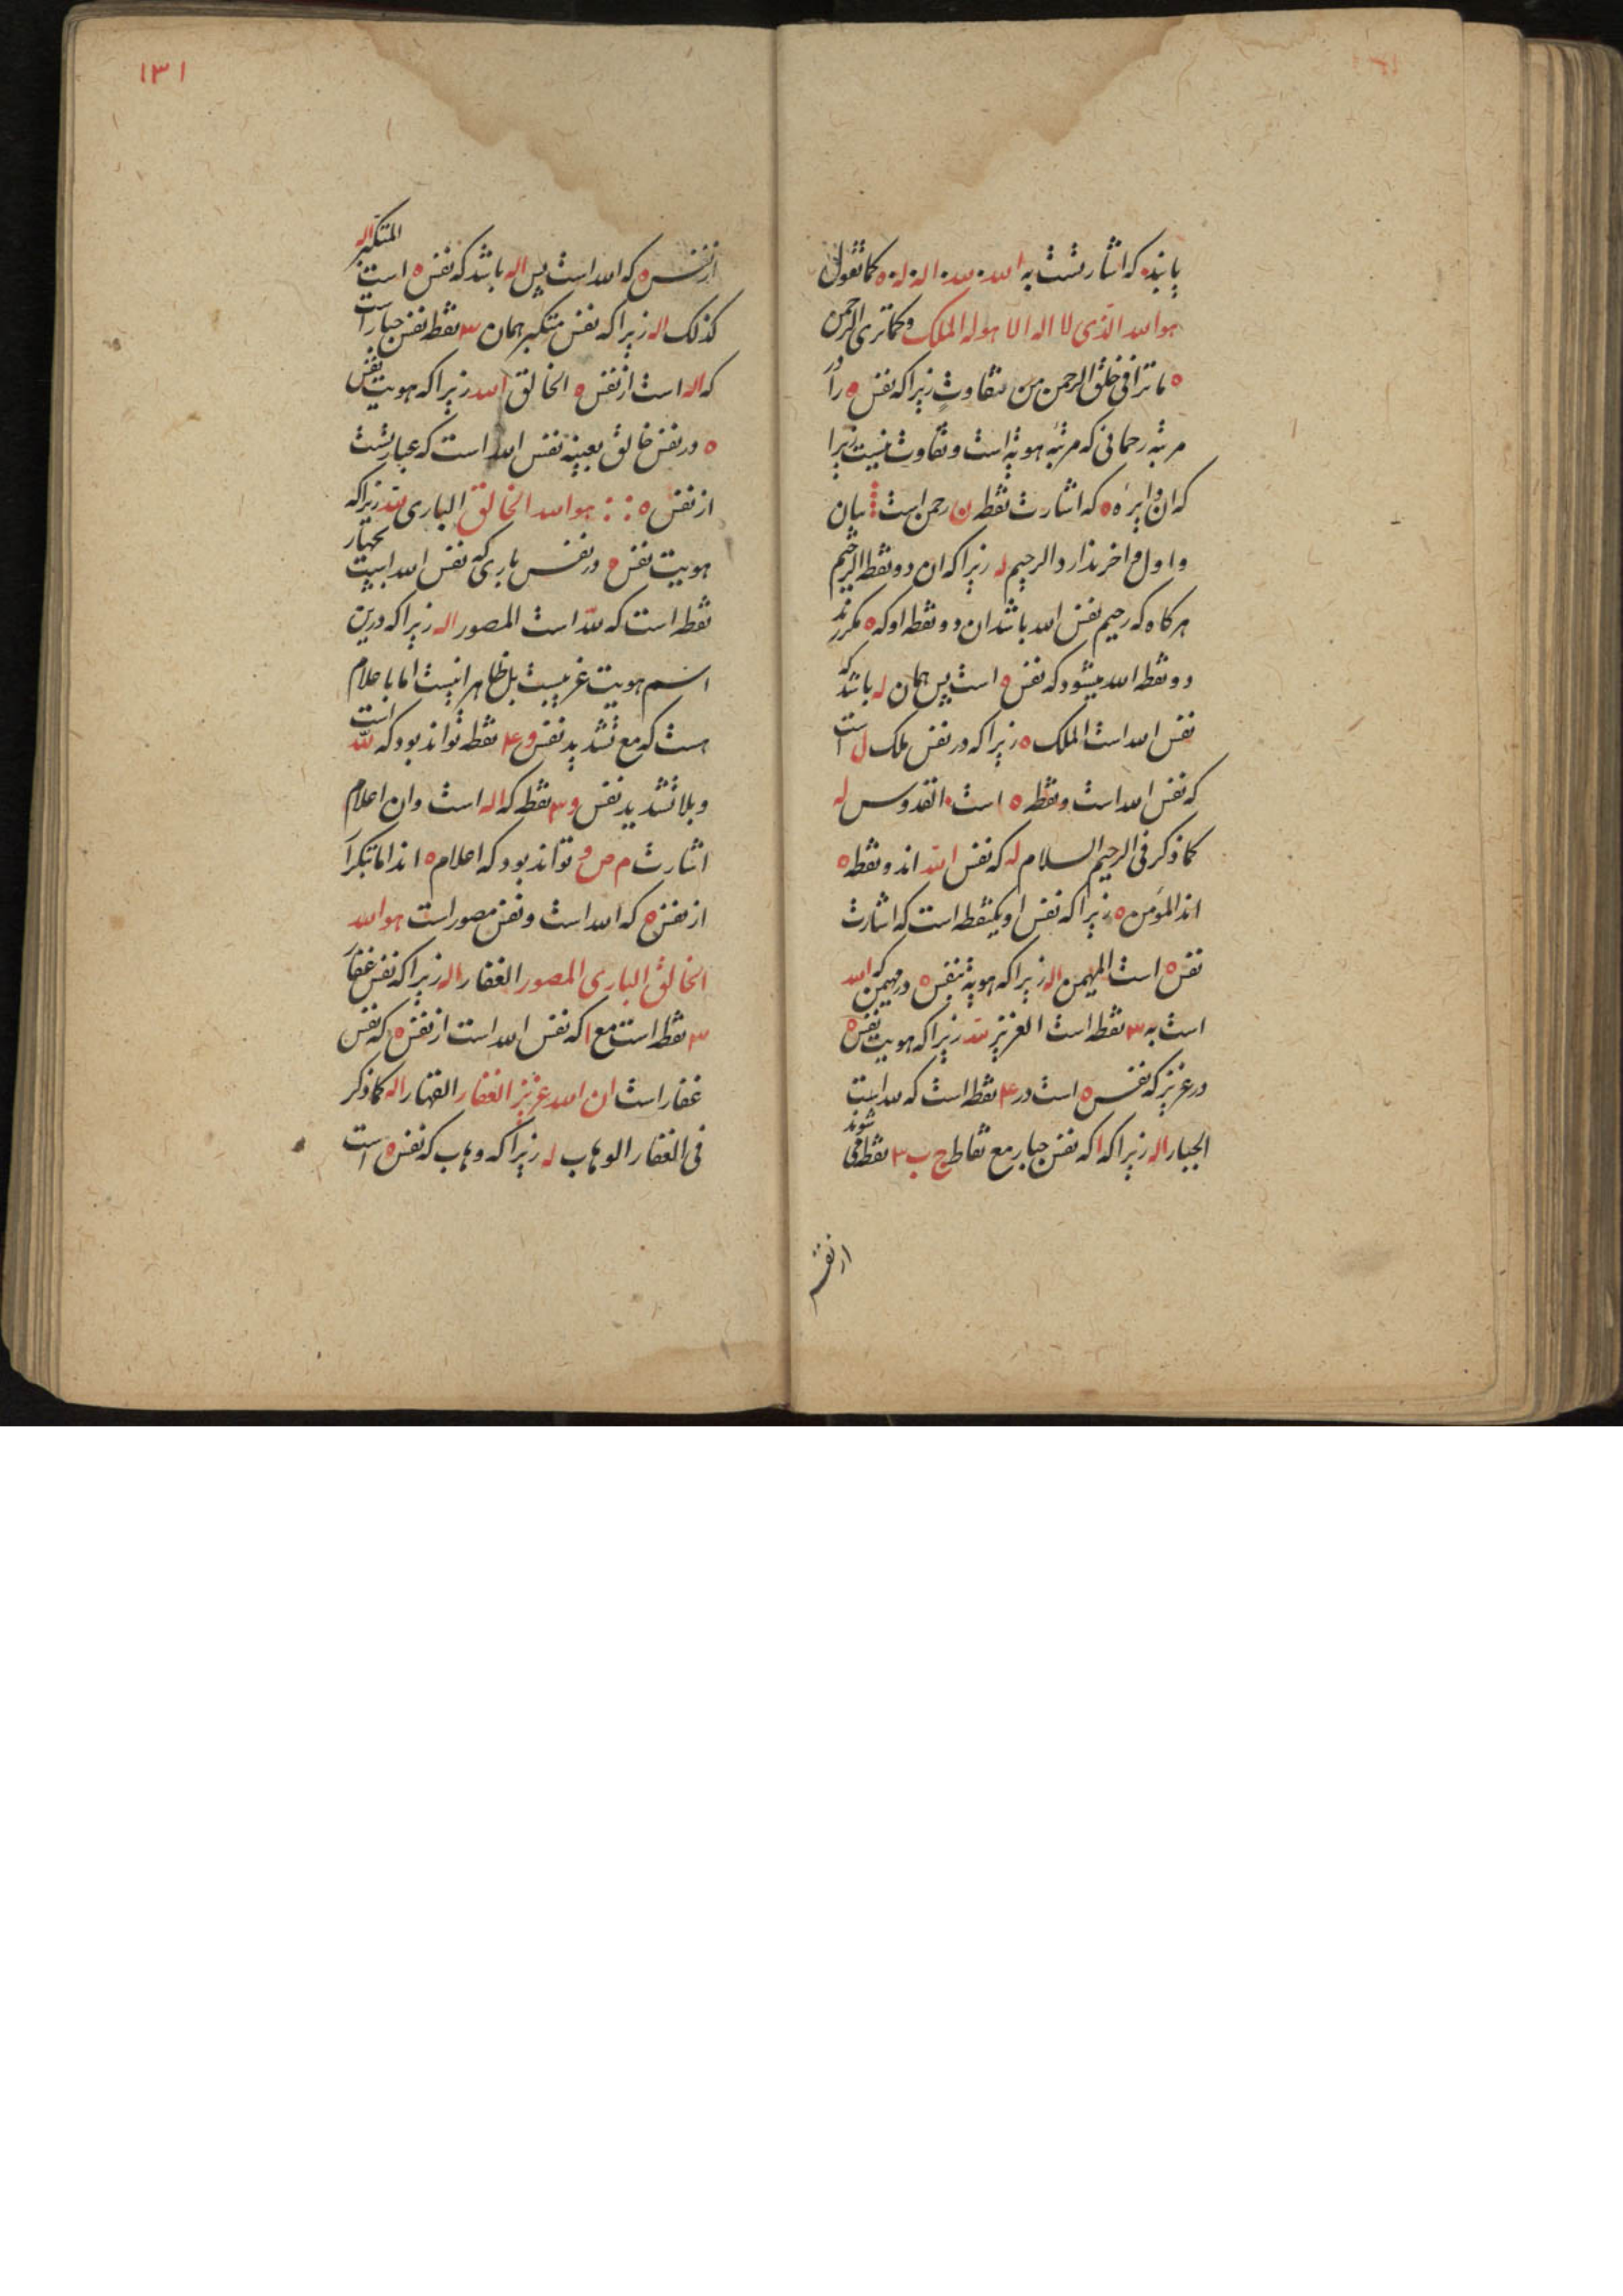 یابند که اشارتست به الله لله اله له ه کما تقول
هو الله الذی لا اله الا هو له الملک وکما تری الرحمن
ه ما تری فی خلق الرحمن من تفاوت زیرا که نفس ه را در
مرتبه رحمانی که مرتبه هویة است وتفاوت نیست زیرا
که ان دایره ه که اشارت نقطه ن رحمن است بیان
واول واخر ندارد الرحیم له زیرا که ان دو نقطه الرحیم
هرکاه که رحیم نفس الله باشد ان دو نقطه او که ه مکررند
دو نقطه الله میشود که نفس ه است پس همان له باشد که
نفس الله است الملک ه زیرا که در نفس ملک ل است
که نفس الله است ونقطه ه است القدوس له
کما ذکر فی الرحیم السلام له که نفس الله اند ونقطه ه
اند المؤمن ه زیرا که نفس او یکنقطه است که اشارت
نفس ه است المهیمن اله زیرا که هویة نفس ه در مهیمن که الله
است به ۳ نقطه است العزیز لله زیرا که هویت نفس ه
در عزیز که نفس ه است در ۴ نقطه است که لله است
الجبار اله زیرا که ا که نفس جبار مع نقاط ج ب ۳ نقطه شوند
از نفس
۱۳۱
از نفس ه که الله است پس اله باشد که نفس ه است المتکبر اله
کذلک اله زیرا که نفس متکبر همان ۳ نقطه نفس جبار است
که اله است از نفس ه الخالق الله زیرا که هویت نفس
ه در نفس خالق بعینه نفس الله است که عبارتست
از نفس ه هو الله الخالق الباری لله زیرا که
هویت نفس ه در نفس باری که نفس الله است بچهار
نقطه است که لله است المصور اله زیرا که درین
اسم هویت غریبست بل ظاهرا نیست اما با علام
هست که مع تشدید نفس و ۴ نقطه تواند بود که لله است
وبلا تشدید نفس و ۳ نقطه که اله است وان اعلام
اشارت م ص و تواند بود که اعلام ه اند اما
از نفس ه که الله است ونفس مصور است هو الله
الخالق الباری المصور الغفار اله زیرا که نفس غفار
۳ نقطه است مع ا که نفس الله است از نفس ه که نفس
غفار است ان الله عزیز الغفار القهار اله کما ذکر
فی الغفار الوهاب له زیرا که وهاب که نفس ه است